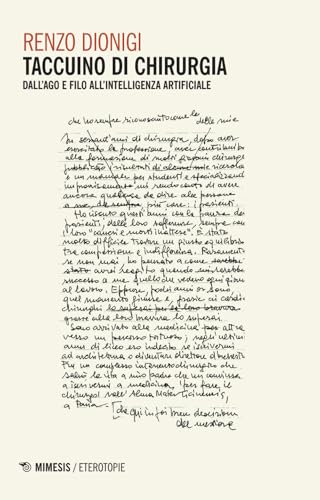 RENZO DIONIGI
TACCUINO DI CHIRURGIA
DALL'AGO E FILO ALL'INTELLIGENZA ARTIFICIALE
che ho sempre riconosciuto come le delle mie
In sessant'anni di chirurgia, dopo aver
esercitato la professione, aver contribuito
alla formazione di molti giovani chirurghi
pubblicato i risultati di alcune mie ricerche
e un manuale per studenti e specializzandi
mi rendo conto di avere
ancora qualcosa da dire alle persone
a me da sempre più care: i pazienti.
Ho vissuto questi anni con la paura dei
pazienti, delle loro sofferenze, sempre con
i loro "cancri e morti inattese". È stato
molto difficile trovare un giusto equilibrio
tra compassione e indifferenza. Raramente
se non mai, ho pensato a come sarebbe
stato avrei reagito quando sarebbe
successo a me quello che vedevo ogni giorno
al lavoro. Eppure, pochi anni or sono,
quel momento giunse e, grazie ai cardio
chirurghi lo superai per la loro bravura
grazie alla loro bravura lo superai.
Sono arrivato alla medicina per attra
verso un percorso tortuoso; negli ultimi
anni di liceo ero indeciso se iscrivermi
ad architettura o diventare direttore d'orchestra
Fu un complesso intervento chirurgico che
salvò la vita a mio padre che mi convinse
a iscrivermi a medicina, per fare il
chirurgo nell'Alma Mater Ticinensis,
a Pavia. Da qui in poi brevi descrizioni
del mestiere
MIMESIS / ETEROTOPIE